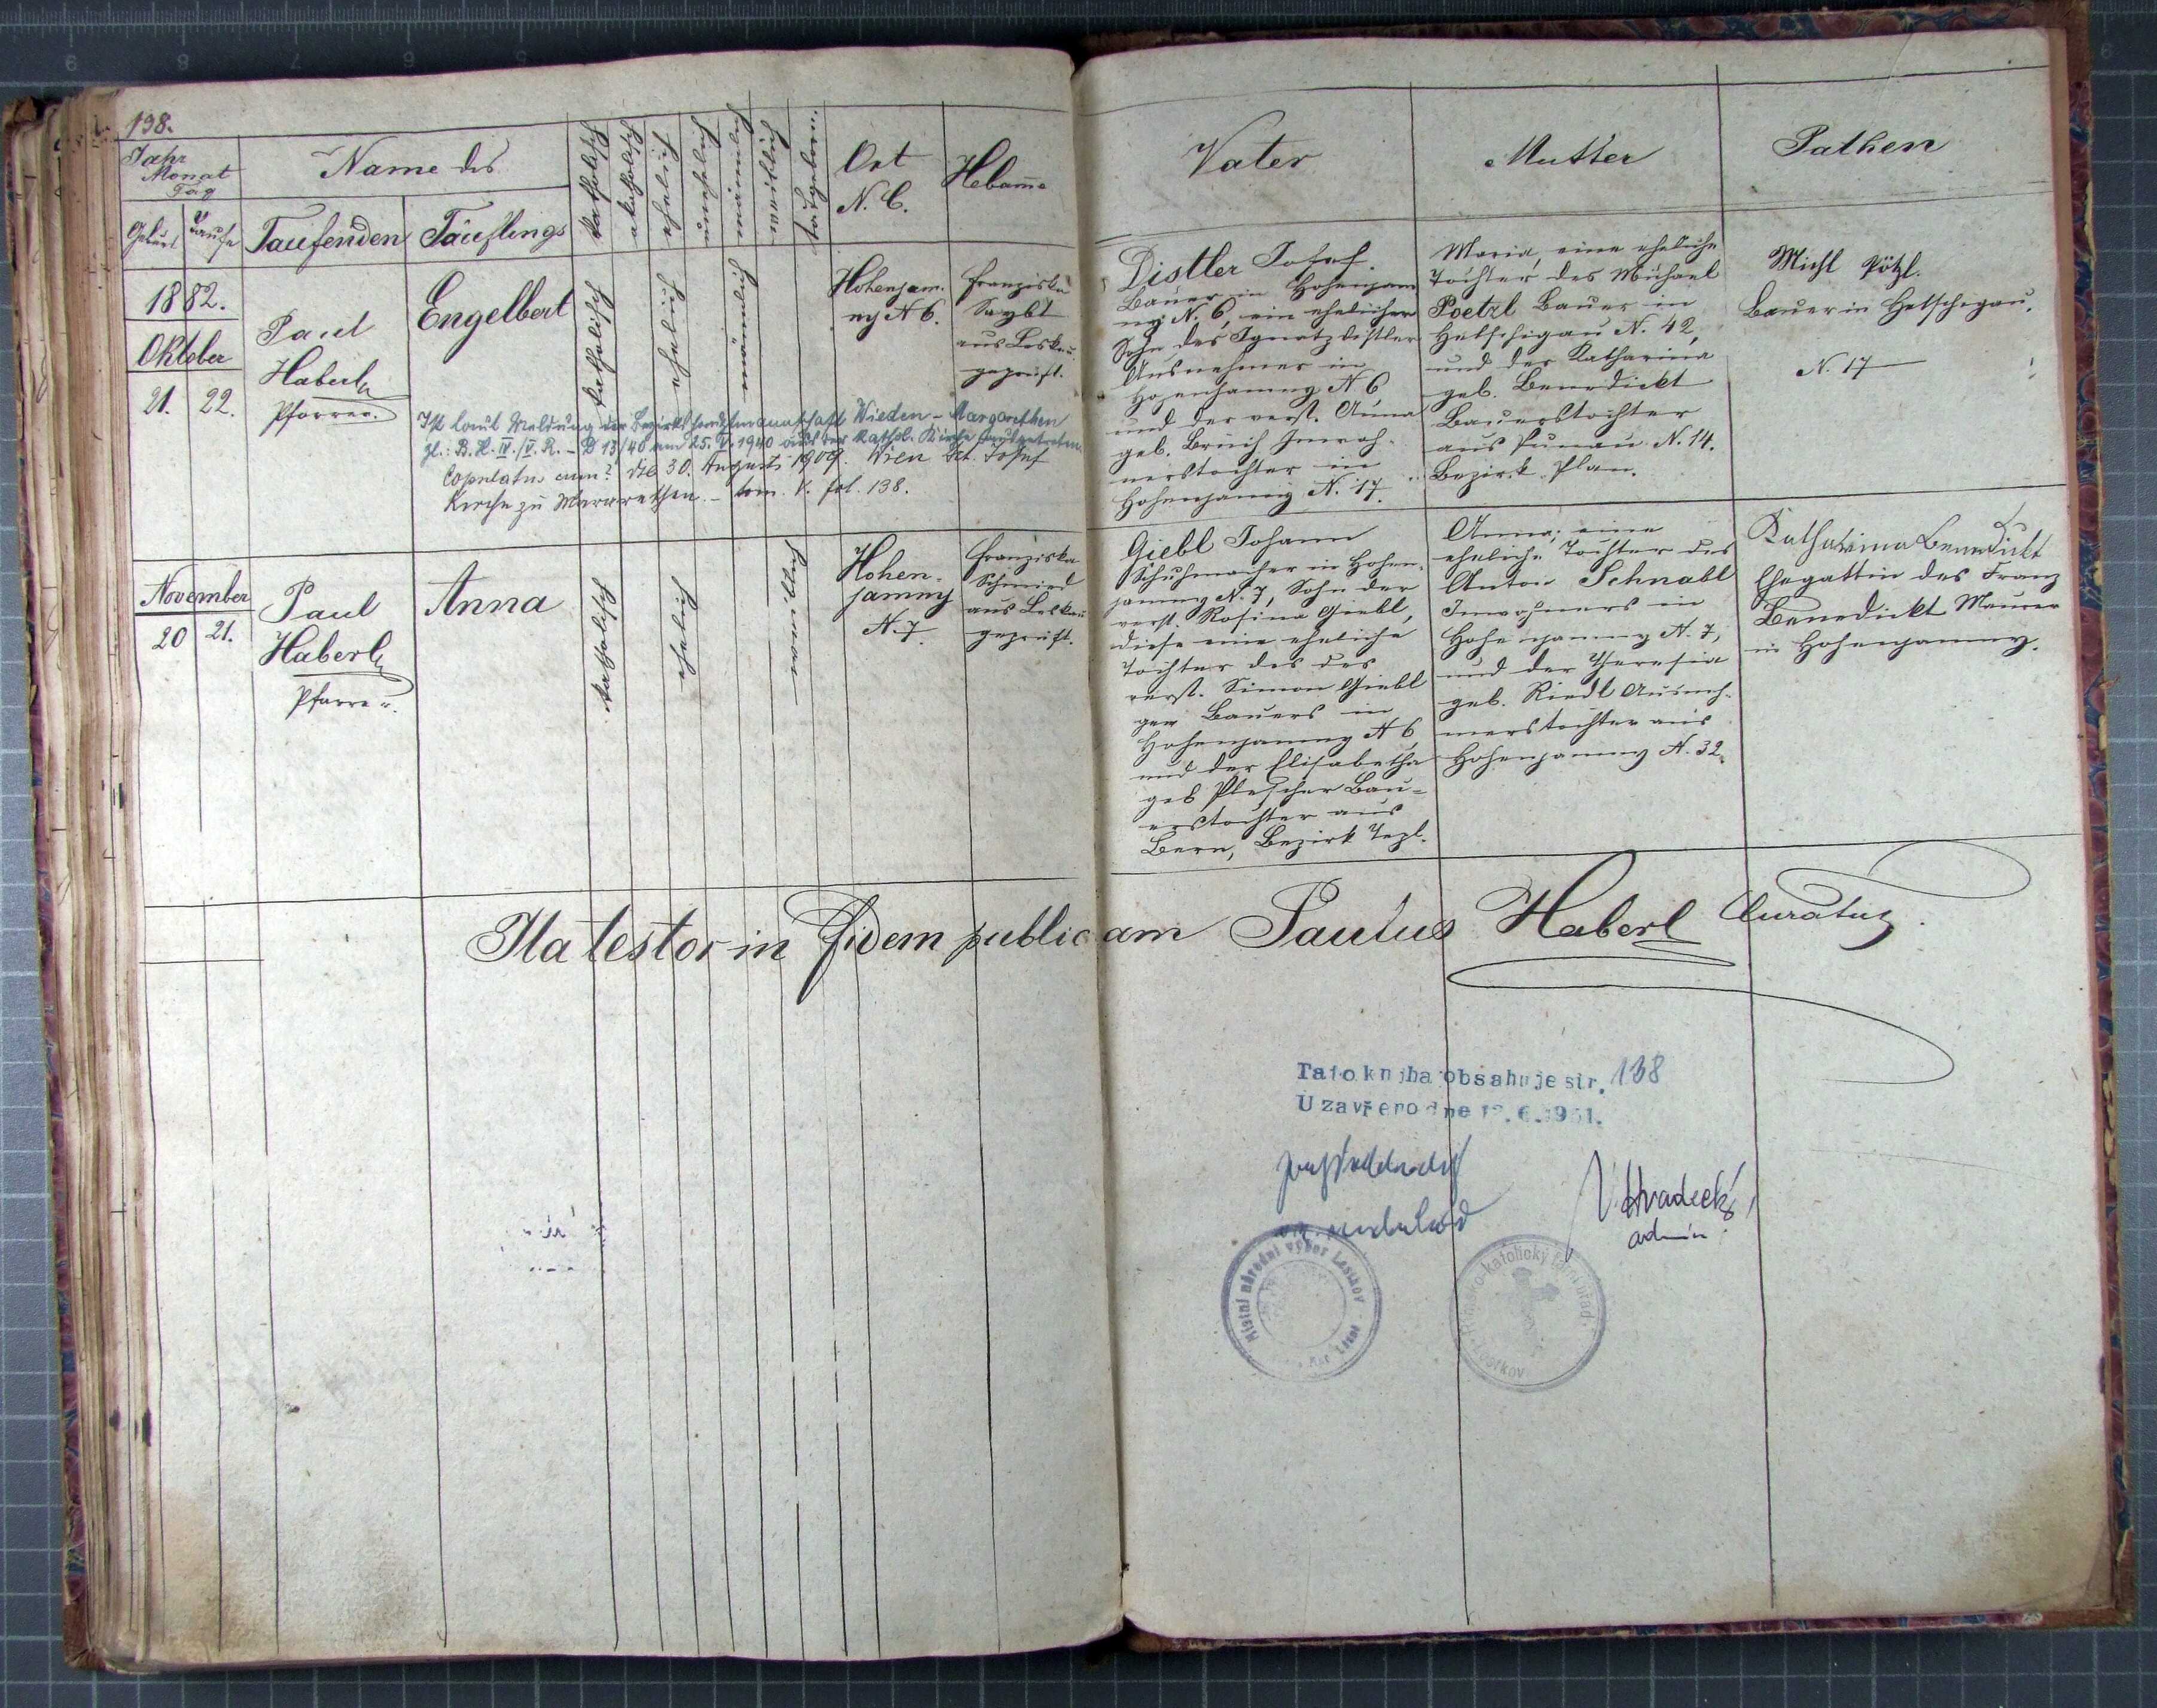 138.
Jahr
Monat
Tag
Name des
katholisch
akatholisch
ehelich
unehelich
männlich
weiblich
todtgeboren.
Ort
N. C.
Hebame
Vater
Mutter
Pathen
Geburt
Taufe
Taufenden
Täuflings
1882.
Oktober
21. 22.
Paul
Haberl
Pfarrer.
Engelbert
katholisch
ehelich
männlich
Hohenjam-
ny N 6.
Franziska
Saybt
aus Leskau
geprüft.
Ist laut Meldung der Bezirkshauptmannschaft Wieden-Margarethen
zl.: B. H. IV./V. R. - D 13/40 am 25. V. 1940 aus der kathol. Kirche ausgetreten
Copulatus cum? die 30. Augusti 1909. Wien Skt. Josef
Kirche zu Margarethen. - tom. V. fol. 138.
Distler Josef.
Bauer in Hohenjam
ny N. 6, ein ehelicher
Sohn des Ignatz Distler
Ausnehmer in
Hohenjamny N 6
und der verst. Anna
geb. Bruch Inwoh-
nerstochter in
Hohenjamny N. 17.
Maria, eine eheliche
Tochter des Michael
Poetzl Bauer in
Hetschigau N. 42,
und der Katharina
geb. Benedickt
Bauerstochter
aus Punau N. 14.
Bezirk Plan.
Michl Pötzl.
Bauer in Hetschigau.
N. 17
November
20 21.
Paul
Haberl
Pfarrer.
Anna
katholisch
ehelich
Hohen-
jamny
N. 7
Franziska
Schmied
aus Leskau
geprüft.
Giebl Johann
Schuhmacher in Hohen-
jamny N. 7, Sohn der
verst. Rosina Giebl,
diese eine eheliche
Tochter des des
verst. Simon Giebl
gew Bauers in
Hohenjamny N 6,
und der Elisabetha
geb Plescher Bau-
erstochter aus
Bern, Bezirk Tepl.
Anna, eine
eheliche Tochter des
Anton Schnabl
Inwohners in
Hohenjamny N. 7,
und der Theresia
geb. Riedl Ausneh-
merstochter aus
Hohenjamny N. 32.
Katharina Benedickt
Ehegattin des Franz
Benedickt Maurer
in Hohenjamny.
Ita testor in fidem publicam Paulus Haberl Curatus.
Tato kniha obsahuje str. 138
Uzavřeno dne 6.1951.
V. Hradecký
admin.
Místní národní výbor Lestkov
Římsko-katolický farní úřad
Lestkov